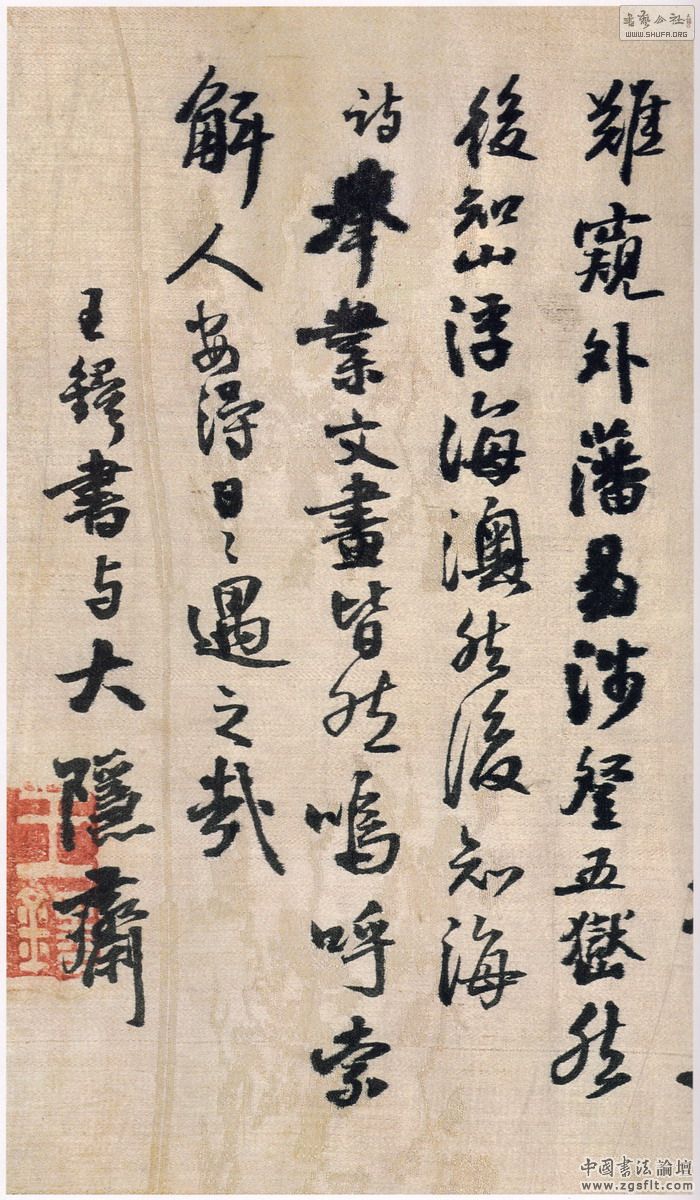 難窺外藩易涉登五嶽然
後知山浮海澳然後知海
詩舉業文畫皆然嗚呼索
解人安得日〻遇之哉
王鐸書与大隱齋
書藝公社
WWW.SHUFA.ORG
中国书法論壇
www.zgsflt.com